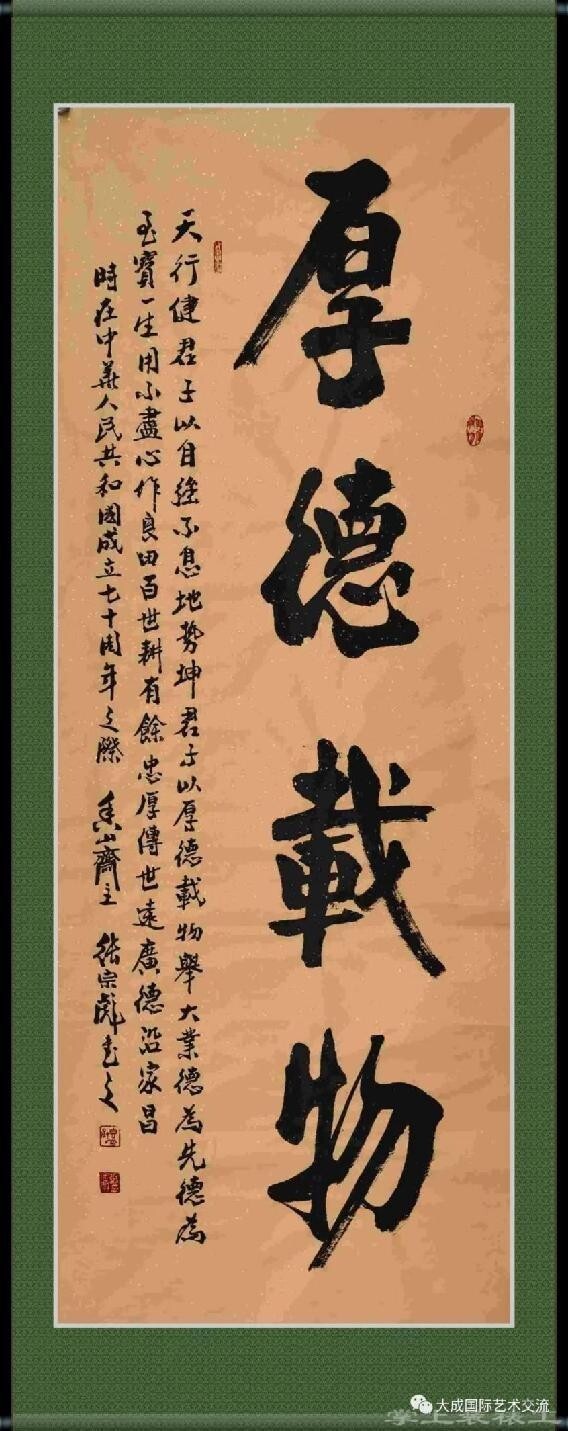 厚德載物
天行健君子以自強不息地势坤君子以厚德載物舉大業德為先德為
至寶一生用不盡心作良田百世耕有餘忠厚傳世遠廣德沿家昌
時在中華人民共和國成立七十周年之際 香山齋主 張宗彪書之
大成国际艺术交流
掌上装裱王